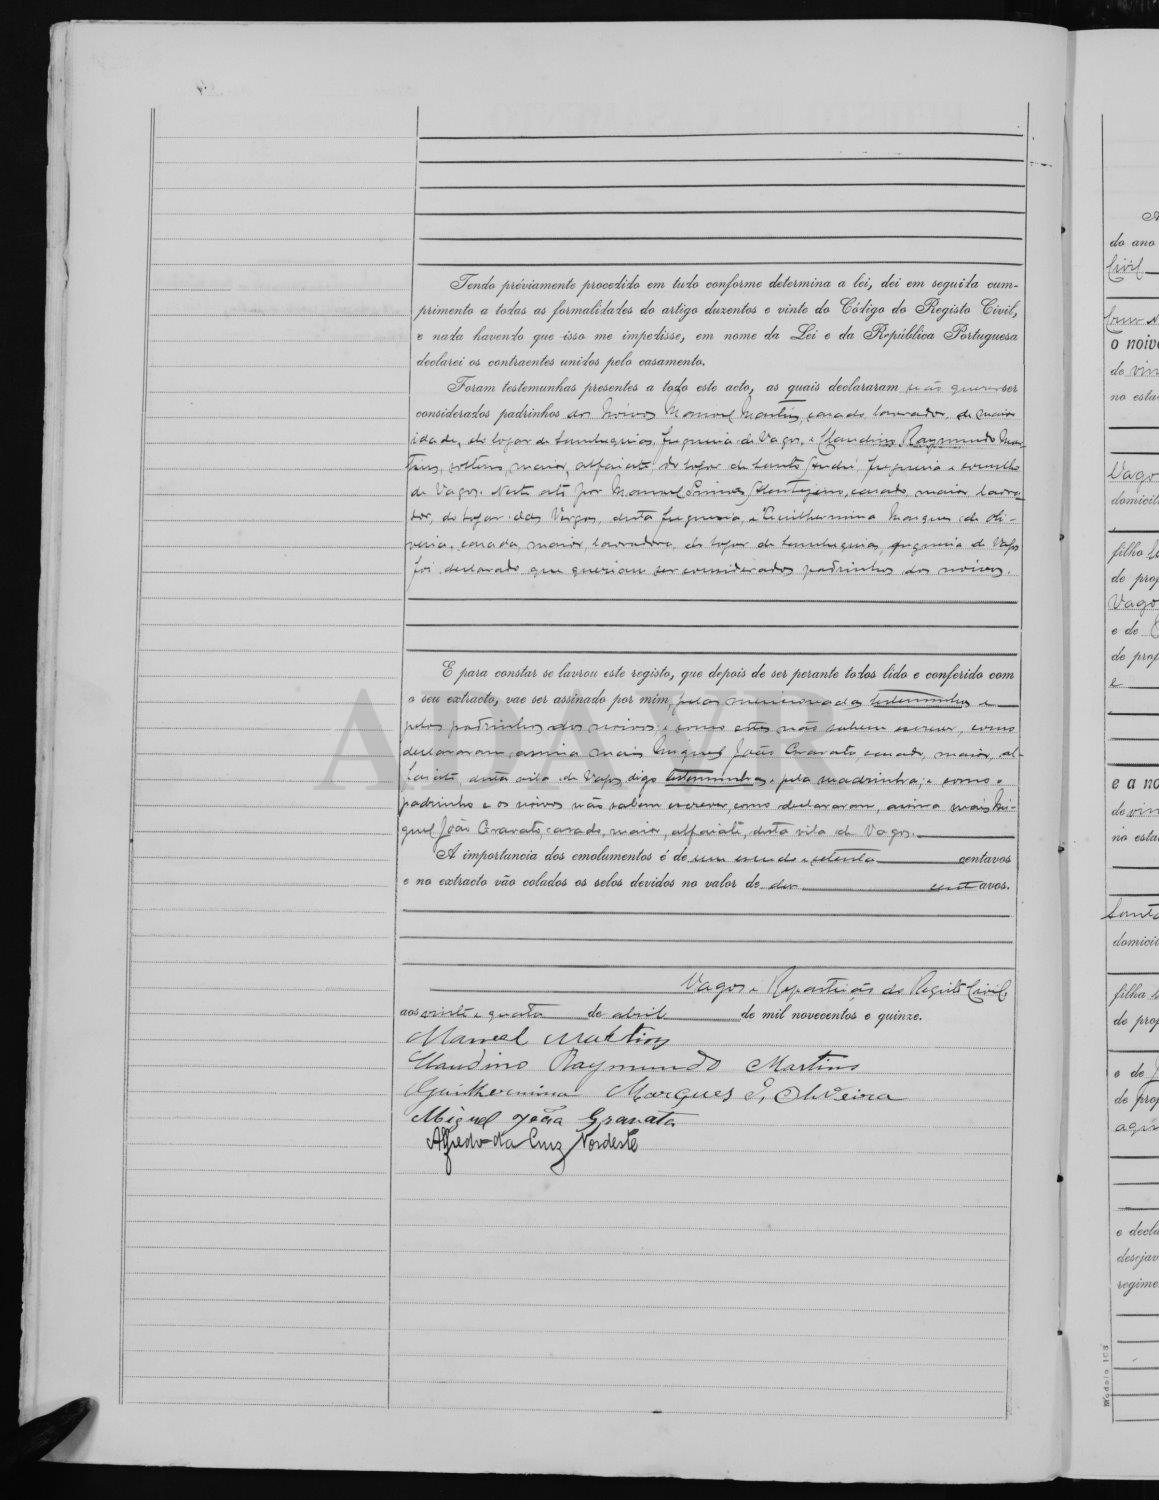 Tendo préviamente procedido em tudo conforme determina a lei, dei em seguida cum-
primento a todas as formalidades do artigo duzentos e vinte do Código do Registo Civil,
e nada havendo que isso me impedisse, em nome da Lei e da República Portuguesa
declarei os contraentes unidos pelo casamento.
Foram testemunhas presentes a todo este acto, as quais declararam não querer ser
considerados padrinhos dos noivos Manoel Martins, casado, lavrador, de maior
idade, do logar de freguesia de Vagos, e Claudino Raymundo Mar-
tins, solteiro, maior, alfaiate do logar de Santo André, freguesia e concelho
de Vagos. Neste acto por Manuel casado, maior, lavra-
dor, do logar das Vergas, desta freguesia, e Guilhermina Marques de Oli-
veira, casada, maior, lavradora, do logar de freguesia de Vagos
foi declarado que queriam ser considerados padrinhos dos noivos.
E para constar se lavrou este registo, que depois de ser perante todos lido e conferido com
o seu extracto, vae ser assinado por mim, pelas mencionadas testemunhas e
pelos padrinhos dos noivos; e como estes não sabem escrever, como
declararam, assina mais Miguel João Gravato, casado, maior, al-
faiate, desta vila de Vagos, digo testemunhas, pela madrinha, e como o
padrinho e os noivos não sabem escrever, como declararam, assina mais Mi-
guel João Gravato, casado, maior, alfaiate, desta vila de Vagos.
A importancia dos emolumentos é de um escudo e setenta centavos
e no extracto vão colados os selos devidos no valor de dez centavos.
Vagos e Repartição do Registo Civil,
aos vinte e quatro de abril de mil novecentos e quinze.
Manoel Martins
Claudino Raymundo Martins
Guilhermina Marques d'Oliveira
Miguel João Gravato
Alfredo da Cruz Nordeste
ADAVR
do ano
Civil
o noivo
de vin
no esta
Vagos
domicili
filho
de prof
Vagos
e de
de prof
e
e a no
de vin
no esta
Santo
domicili
filha
de prof
e de
de prof
e decla
desejav
regime
Modelo 103